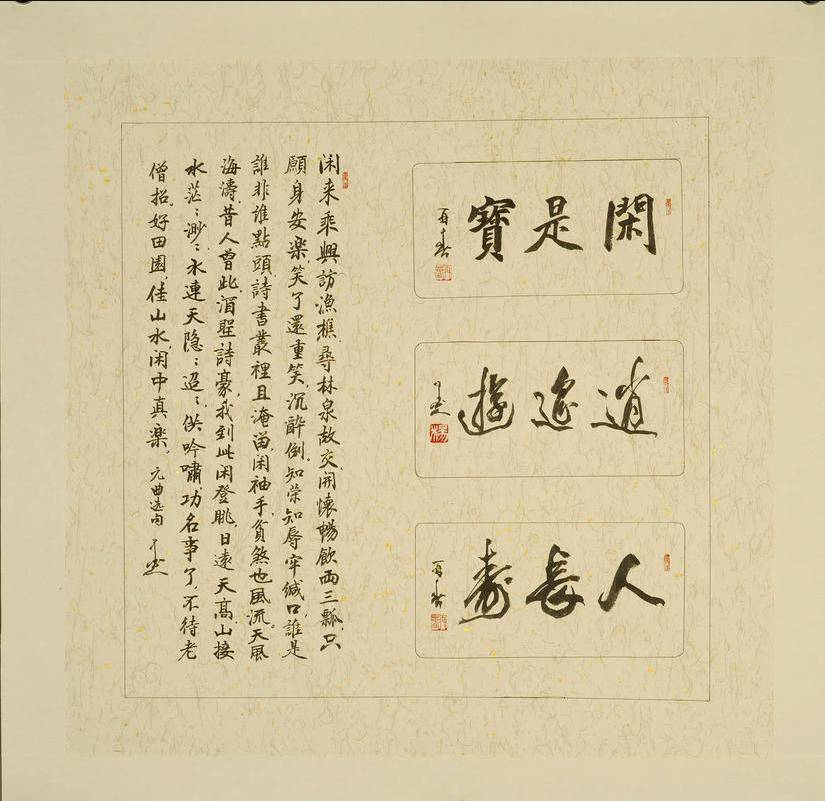 閑是寶
逍遙遊
人長壽
闲来乘興訪漁樵尋林泉故交開懷暢飲兩三瓢只
願身安樂笑了還重笑沉醉倒知荣知辱牢緘口誰是
誰非誰點頭詩書叢裡且淹留闲袖手貧煞也風流天風
海濤昔人曾此酒聖詩豪我到此闲登眺日遠天高山接
水茫〻渺〻水連天隐〻迢〻供吟嘯功名事了不待老
僧招好田園佳山水闲中真樂 元曲选句